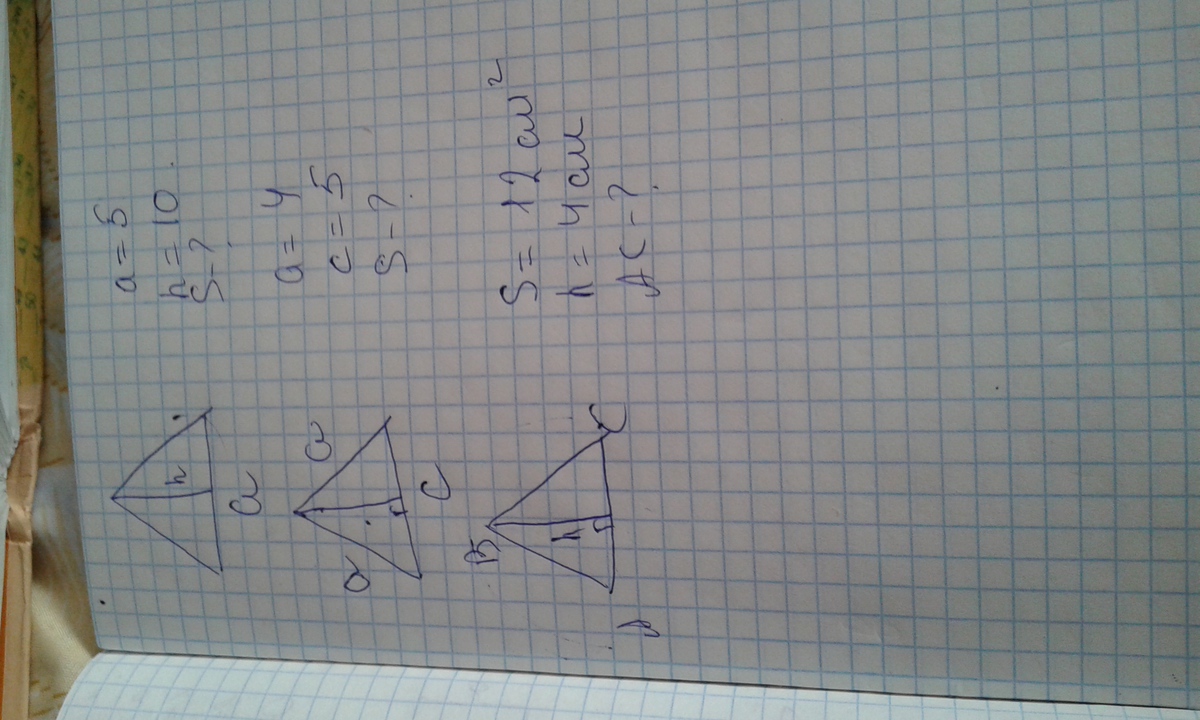 a = 5
h = 10
S - ?
h
a
a = 4
c = 5
S - ?
a
a
c
S = 12 см²
h = 4 см
AC - ?
B
h
A
C